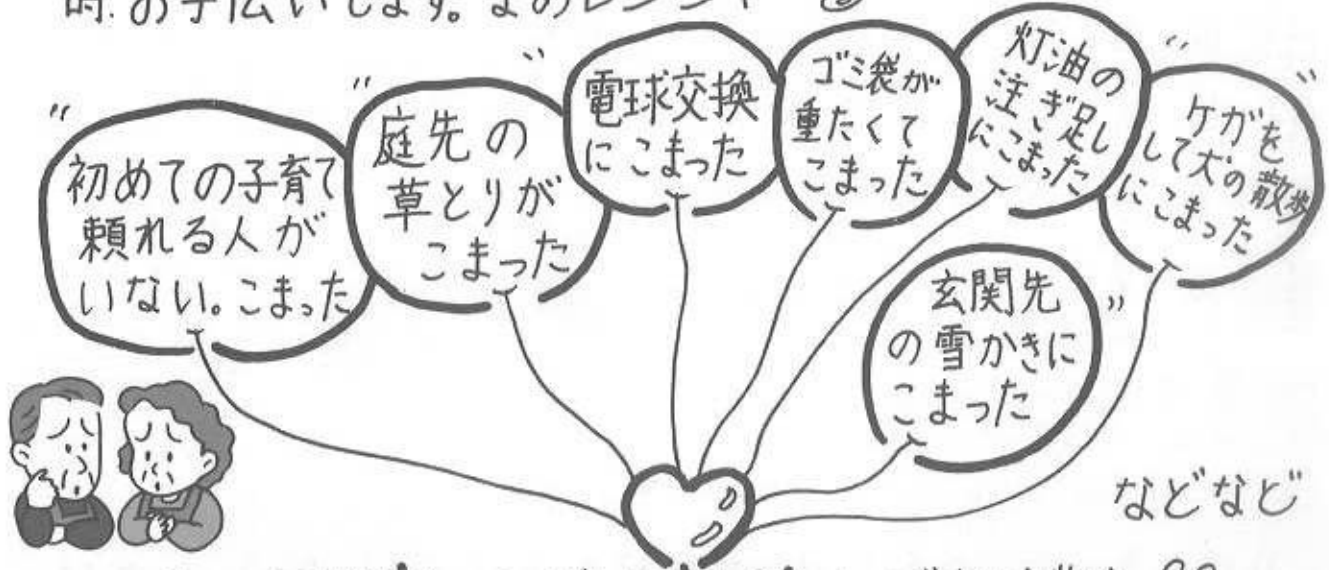 時. お手伝いします。まのレンジャー
初めての子育て
頼れる人が
いない。こまった
庭先の
草とりが
こまった
電球交換
にこまった
ゴミ袋が
重たくて
こまった
灯油の
注ぎ足し
にこまった
ケガを
して犬の散歩
にこまった
玄関先
の雪かきに
こまった
などなど